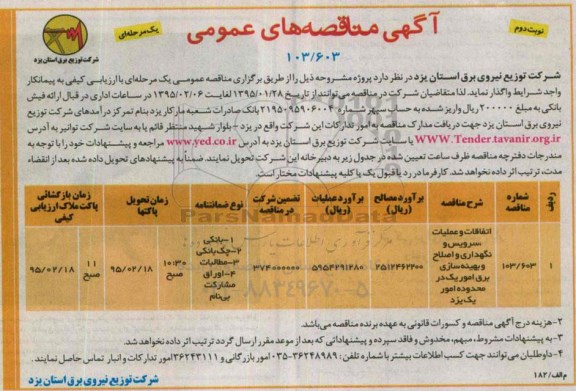 آگهی مناقصه‌های عمومی
نوبت دوم
یک مرحله‌ای
۱۰۳/۶۰۳
شرکت توزیع برق استان یزد
شرکت توزیع نیروی برق استان یزد در نظر دارد پروژه مشروحه ذیل را از طریق برگزاری مناقصه عمومی یک مرحله‌ای با ارزیابی کیفی به پیمانکار
واجد شرایط واگذار نماید. لذا متقاضیان شرکت در مناقصه می‌توانند از تاریخ ۱۳۹۵/۰۱/۲۸ لغایت ۱۳۹۵/۰۲/۰۶ در ساعات اداری در قبال ارائه فیش
بانکی به مبلغ ۲۰۰۰۰۰ ریال واریز شده به حساب سپهر شماره ۰۲۱۹۵۰۹۵۹۰۶۰۰۴ بانک صادرات شعبه مارکار یزد بنام تمرکز درآمدهای شرکت توزیع
نیروی برق استان یزد جهت دریافت مدارک مناقصه به امور تدارکات این شرکت واقع در یزد - بلوار شهید منتظر قائم یا به سایت شرکت توانیر به آدرس
WWW.Tender.tavanir.org.ir یا سایت شرکت توزیع برق استان یزد به آدرس www.yed.co.ir مراجعه و پیشنهادات خود را با توجه به
مندرجات دفترچه مناقصه ظرف ساعت تعیین شده در جدول زیر به دبیرخانه این شرکت تحویل نمایند. ضمناً به پیشنهادهای تحویل داده شده بعد از انقضاء
مدت، ترتیب اثر داده نخواهد شد. کارفرما در رد یا قبول یک یا کلیه پیشنهادات مختار است.
ردیف | شماره مناقصه | شرح مناقصه | برآورد مصالح (ریال) | برآورد عملیات (ریال) | تضمین شرکت در مناقصه | نوع ضمانتنامه | زمان تحویل پاکتها | زمان بازگشائی پاکت ملاک ارزیابی کیفی
۱ | ۱۰۳/۶۰۳ | اتفاقات و عملیات، سرویس و نگهداری و اصلاح و بهینه‌سازی برق امور یک در محدوده امور یک یزد | ۲۵۱۲۴۶۲۲۰۰ | ۵۹۵۴۲۹۱۲۸۰ | ۳۷۴۰۰۰۰۰۰ | ۱-بانکی ۲-چک بانکی ۳-مطالبات ۴-اوراق مشارکت بی‌نام | ۱۰:۳۰ صبح ۹۵/۰۲/۱۸ | ۱۱ صبح ۹۵/۰۲/۱۸
ParsNamadData
۸۸۳۴۹۶۷۰-۵
۲-هزینه درج آگهی مناقصه و کسورات قانونی به عهده برنده مناقصه می‌باشد.
۳- به پیشنهادات مشروط، مبهم، مخدوش و فاقد سپرده و پیشنهاداتی که بعد از موعد مقرر ارسال گردد ترتیب اثر داده نخواهد شد.
۴-داوطلبان می‌توانند جهت کسب اطلاعات بیشتر با شماره تلفن: ۳۶۲۴۸۹۸۹-۰۳۵ امور بازرگانی و ۳۶۲۴۳۱۱۱ امور تدارکات و انبار تماس حاصل نمایند.
شرکت توزیع نیروی برق استان یزد
م الف/ ۱۸۲